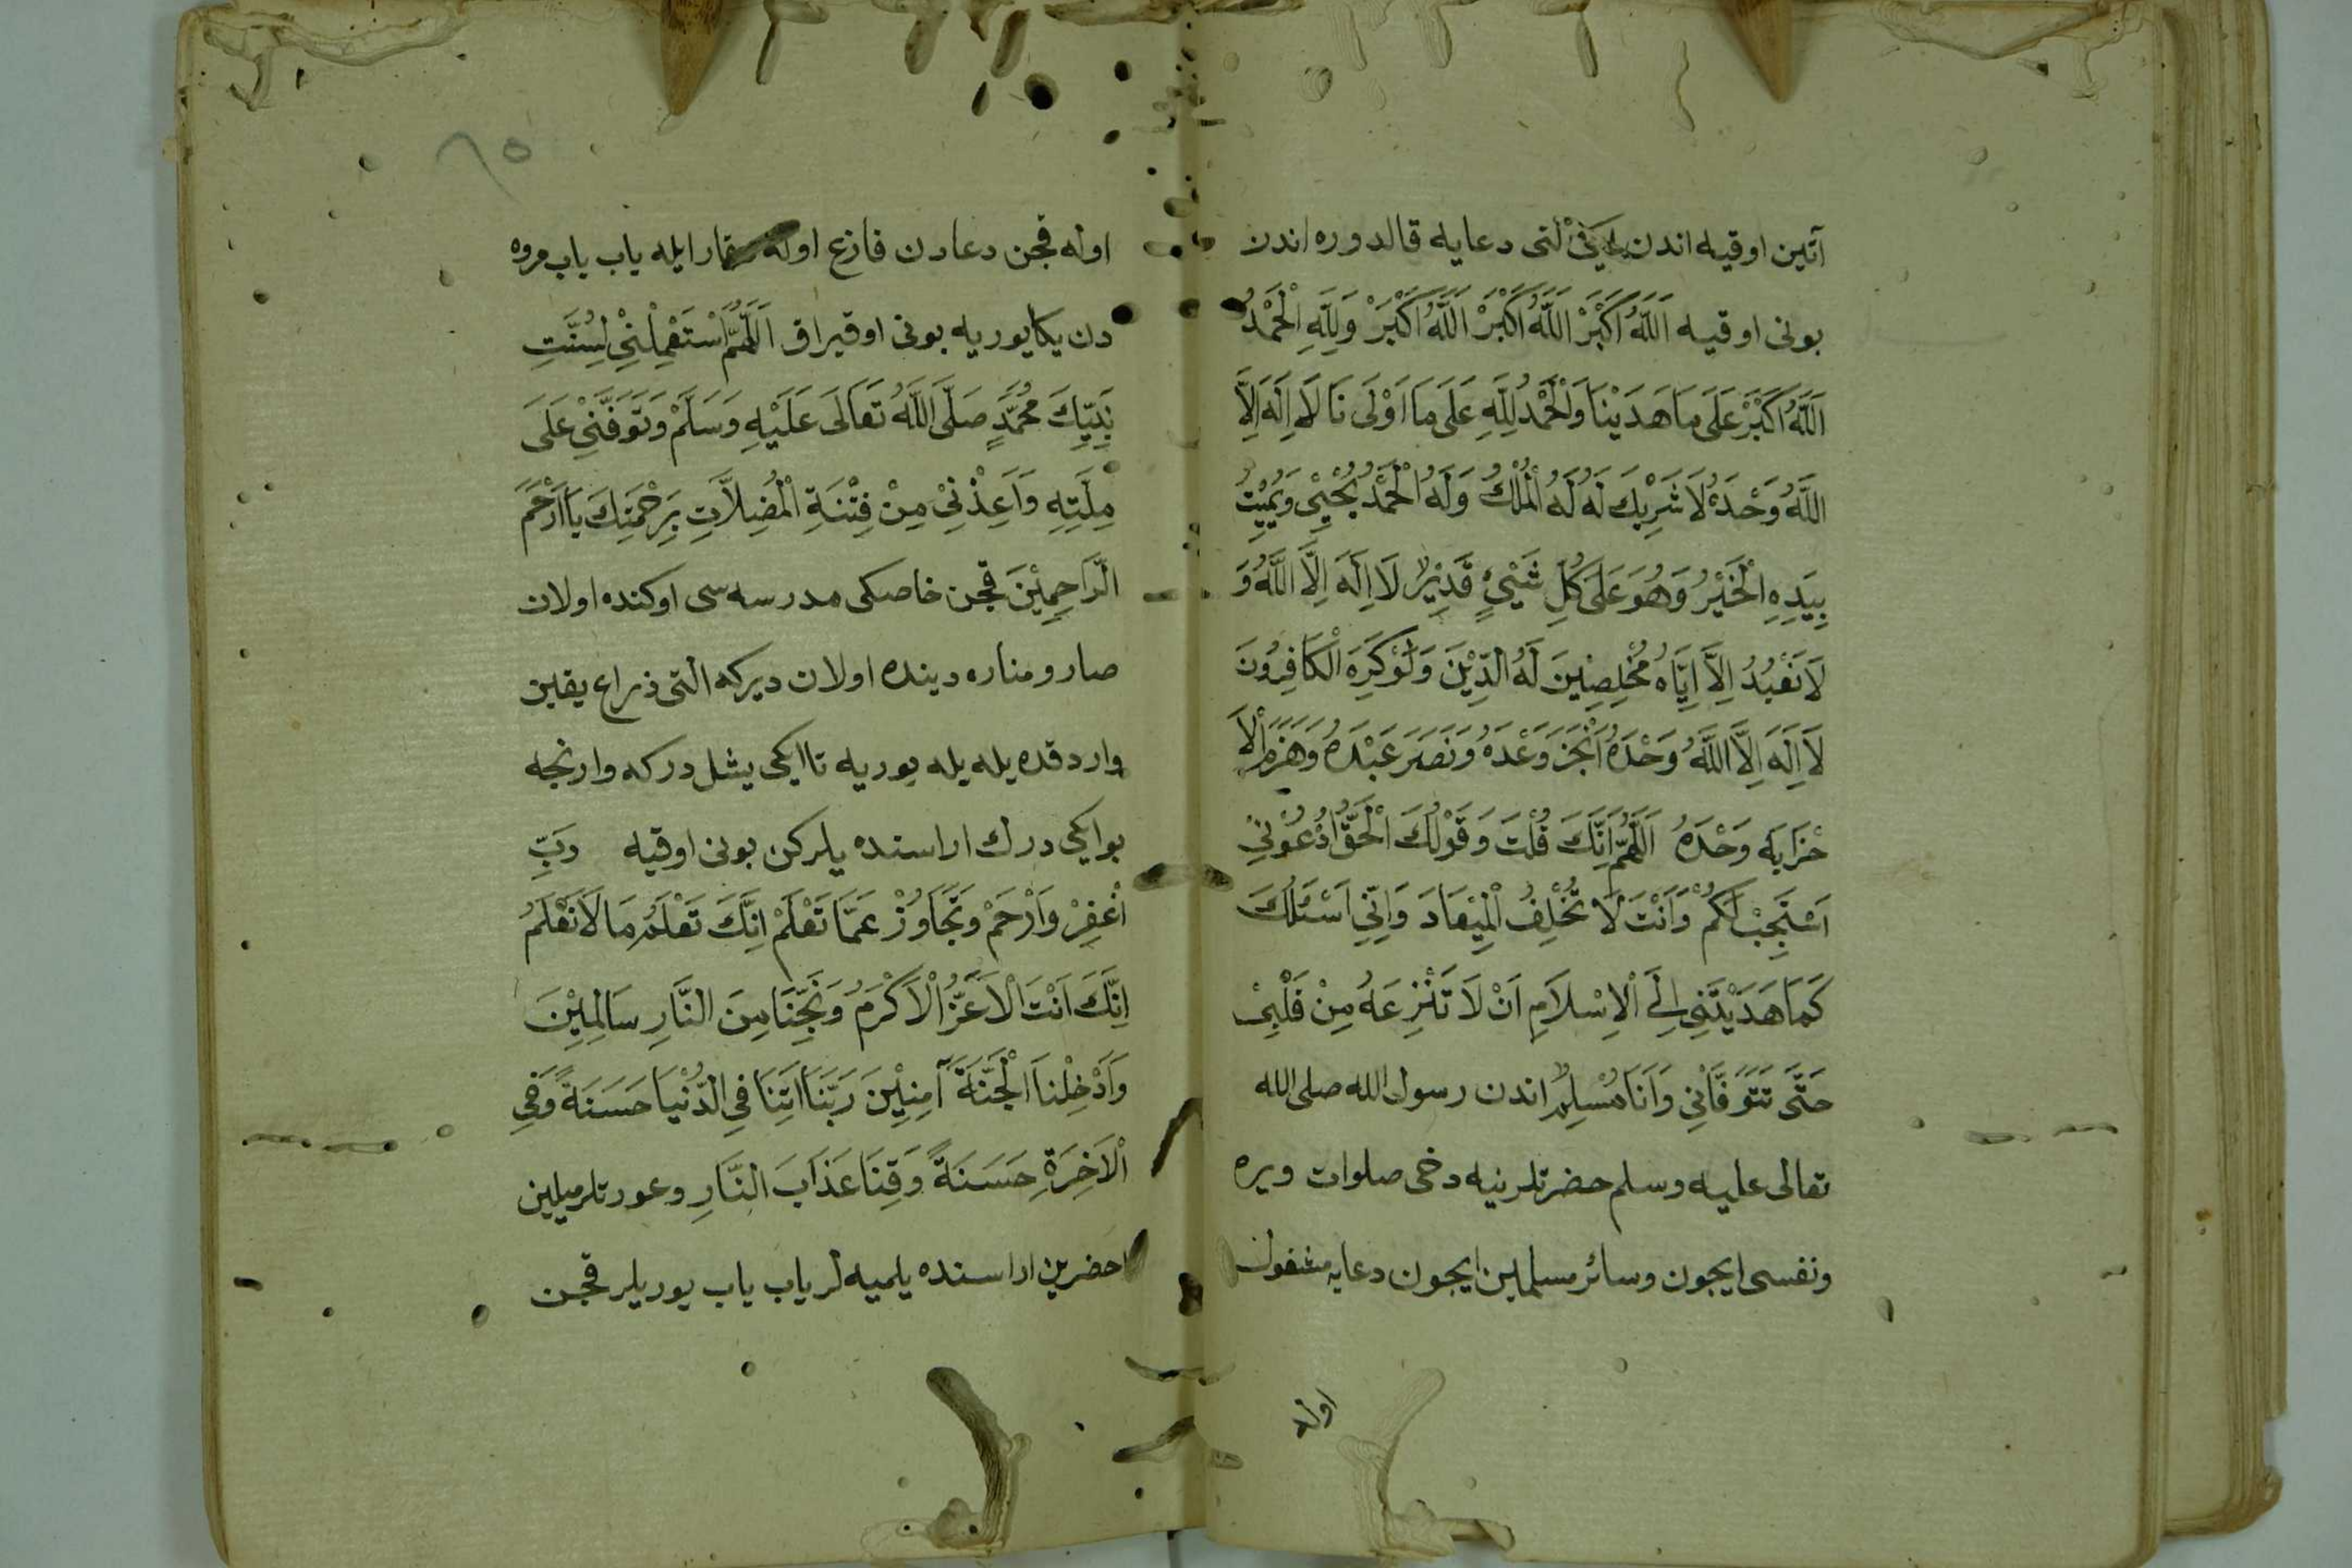 آتین اوقیه اندن ایکی التی دعایه قالدوره اندن
بونی اوقیه اَللّٰهُ اَكْبَرْ اَللّٰهُ اَكْبَرْ اَللّٰهُ اَكْبَرْ وَلِلّٰهِ الْحَمْدُ
اَللّٰهُ اَكْبَرْ عَلَى مَا هَدَيْنَا وَالْحَمْدُ لِلّٰهِ عَلَى مَا اَوْلَى نَا لَا اِلَهَ اِلَّا
اللّٰهُ وَحْدَهُ لَا شَرِيكَ لَهُ لَهُ الْمُلْكُ وَلَهُ الْحَمْدُ يُحْيِي وَيُمِيْتُ
بِيَدِهِ الْخَيْرُ وَهُوَ عَلَى كُلِّ شَيْئٍ قَدِيْرٌ لَا اِلَهَ اِلَّا اللّٰهُ وَ
لَا نَعْبُدُ اِلَّا اِيَّاهُ مُخْلِصِينَ لَهُ الدِّيْنَ وَلَوْ كَرِهَ الْكَافِرُونَ
لَا اِلَهَ اِلَّا اللّٰهُ وَحْدَهُ اَنْجَزَ وَعْدَهُ وَنَصَرَ عَبْدَهُ وَهَزَمَ الْاَ
حْزَابَ وَحْدَهُ اَللّٰهُمَّ اِنَّكَ قُلْتَ وَقَوْلُكَ الْحَقُّ اُدْعُوْنِيْ
اَسْتَجِبْ لَكُمْ وَاَنْتَ لَا تُخْلِفُ الْمِيْعَادَ وَاِنِّي اَسْئَلُكَ
كَمَا هَدَيْتَنِي اِلَى الْاِسْلَامِ اَنْ لَا تَنْزِعَهُ مِنْ قَلْبِيْ
حَتَّى تَتَوَفَّانِي وَاَنَا مُسْلِمٌ اندن رسول الله صلى الله
تعالى عليه وسلم حضرتلرینه دخی صلوات ویره
ونفسی ایچون وسائر مسلمین ایچون دعایه مشغول
اوله
٨٥
اوله قچن دعادن فارغ اوله وقار ایله یاب یاب مروه
دن یکا یوریه بونی اوقیراق اَللّٰهُمَّ اسْتَعْمِلْنِيْ لِسُنَّتِ
نَبِيِّكَ مُحَمَّدٍ صَلَّى اللّٰهُ تَعَالَى عَلَيْهِ وَسَلَّمْ وَتَوَفَّنِيْ عَلَى
مِلَّتِهِ وَاَعِذْنِيْ مِنْ فِتْنَةِ الْمُضِلَّاتِ بِرَحْمَتِكَ يَا اَرْحَمَ
الرَّاحِمِيْنَ قچن خاصکی مدرسه سی اوکنده اولان
صارو مناره دینده اولان دیرکه التی ذراع یقین
وارد قده یله یله یوریه تا ایکی یشل درکه وارنجه
بو ایکی درك اراسنده یلرکن بونی اوقیه رَبِّ
اغْفِرْ وَارْحَمْ وَتَجَاوَزْ عَمَّا تَعْلَمْ اِنَّكَ تَعْلَمُ مَا لَا نَعْلَمُ
اِنَّكَ اَنْتَ الْاَعَزُّ الْاَكْرَمُ وَنَجِّنَا مِنَ النَّارِ سَالِمِيْنَ
وَاَدْخِلْنَا الْجَنَّةَ آمِنِيْنَ رَبَّنَا اَتِنَا فِي الدُّنْيَا حَسَنَةً وَفِي
الْاَخِرَةِ حَسَنَةً وَقِنَا عَذَابَ النَّارِ و عورتلر میلین
احضرین اراسنده یلمیه لر یاب یاب یوریلر قچن